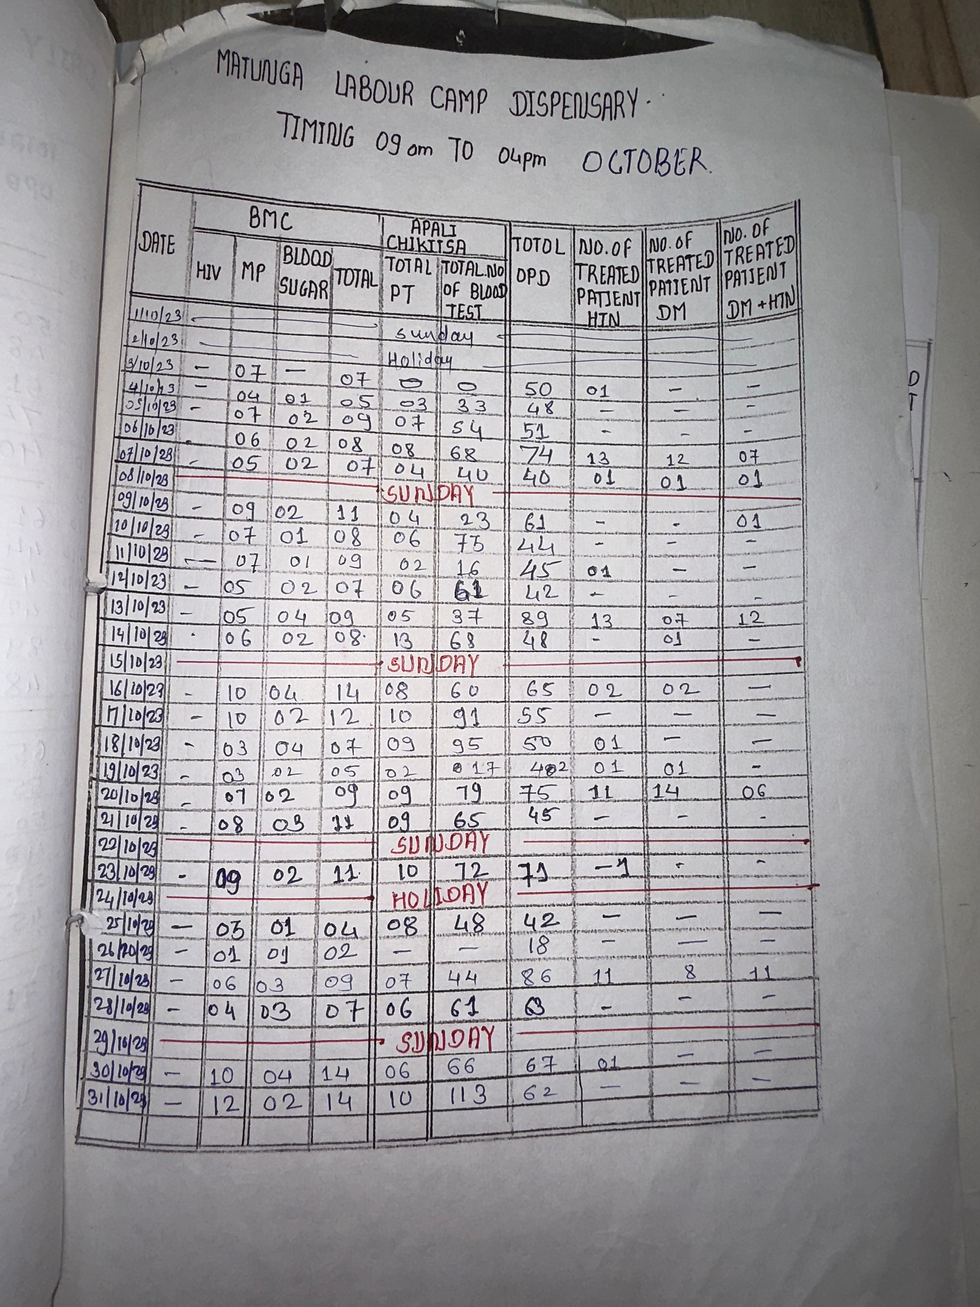 MATUNGA LABOUR CAMP DISPENSARY.
TIMING 09 am TO 04pm OCTOBER.
DATE BMC APALI CHIKITSA TOTOL OPD NO. OF TREATED PATIENT HTN NO. OF TREATED PATIENT DM NO. OF TREATED PATIENT DM + HTN
HIV MP BLOOD SUGAR TOTAL TOTAL PT TOTAL NO OF BLOOD TEST
1/10/23 Sunday
2/10/23 Holiday
3/10/23 – 07 – 07 0 0 50 01 – –
4/10/23 – 04 01 05 03 33 48 – – –
05/10/23 – 07 02 09 07 54 51 – – –
06/10/23 06 02 08 08 68 74 13 12 07
07/10/23 – 05 02 07 04 40 40 01 01 01
08/10/23 SUNDAY
09/10/23 – 09 02 11 04 23 61 – – 01
10/10/23 – 07 01 08 06 75 44 – – –
11/10/23 – 07 01 09 02 16 45 01 – –
12/10/23 – 05 02 07 06 61 42 – – –
13/10/23 05 04 09 05 37 89 13 07 12
14/10/23 . 06 02 08. 13 68 48 – 01 –
15/10/23 SUNDAY
16/10/23 – 10 04 14 08 60 65 02 02 –
17/10/23 – 10 02 12 10 91 55 – – –
18/10/23 – 03 04 07 09 95 50 01 – –
19/10/23 – 03 02 05 02 017 402 01 01 –
20/10/23 – 07 02 09 09 79 75 11 14 06
21/10/23 – 08 03 11 09 65 45 – – –
22/10/23 SUNDAY
23/10/23 – 09 02 11 10 72 71 –1 – –
24/10/23 HOLIDAY
25/10/23 – 03 01 04 08 48 42 – – –
26/20/23 – 01 01 02 – – 18 – – –
27/10/23 – 06 03 09 07 44 86 11 8 11
28/10/23 – 04 03 07 06 61 63 – – –
29/10/23 SUNDAY
30/10/23 – 10 04 14 06 66 67 01 – –
31/10/23 – 12 02 14 10 113 62 – – –